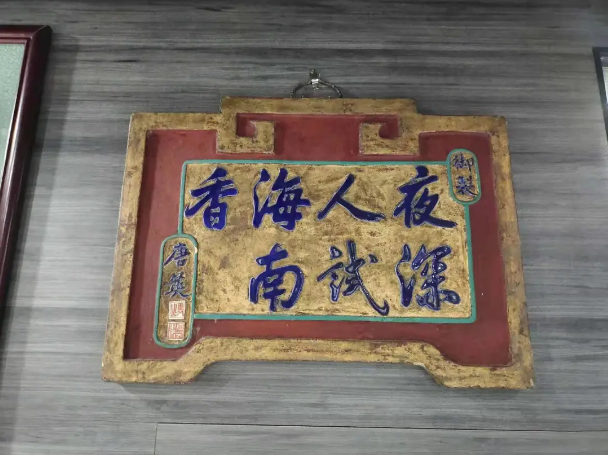 御製
夜深
人試
海南
香
唐英